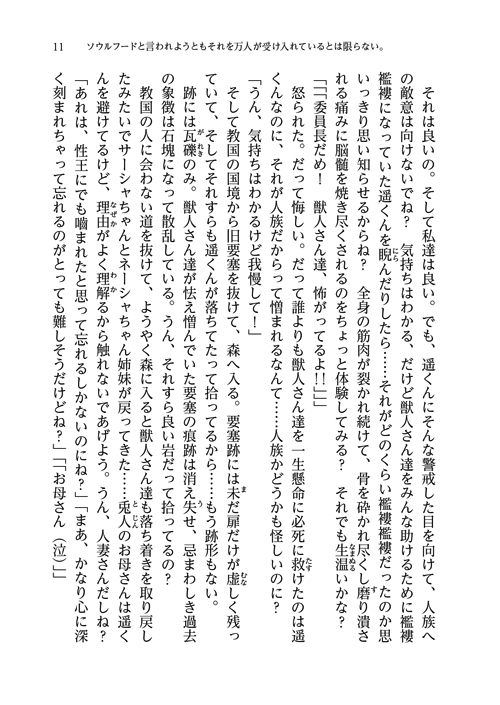 11　ソウルフードと言われようともそれを万人が受け入れているとは限らない。
　それは良いの。そして私達は良い。でも、遥くんにそんな警戒した目を向けて、人族へ
の敵意は向けないでね？　気持ちはわかる、だけど獣人さん達をみんな助けるために襤褸
襤褸になっていた遥くんを睨んだりしたら……それがどのくらい襤褸襤褸だったのか思
いっきり思い知らせるからね？　全身の筋肉が裂かれ続けて、骨を砕かれ尽くし磨り潰さ
れる痛みに脳髄を焼き尽くされるのをちょっと体験してみる？　それでも生温いかな？
「「「委員長だめ！　獣人さん達、怖がってるよ！！」」」
　怒られた。だって悔しい。だって誰よりも獣人さん達を一生懸命に必死に救けたのは遥
くんなのに、それが人族だからって憎まれるなんて……人族かどうかも怪しいのに？
「うん、気持ちはわかるけど我慢して！」
　そして教国の国境から旧要塞を抜けて、森へ入る。要塞跡には未だ扉だけが虚しく残っ
ていて、そしてそれすらも遥くんが落ちてたって拾ってるから……もう跡形もない。
　跡には瓦礫のみ。獣人さん達が怯え憎んでいた要塞の痕跡は消え失せ、忌まわしき過去
の象徴は石塊になって散乱している。うん、それすら良い岩だって拾ってるの？
　教国の人に会わない道を抜けて、ようやく森に入ると獣人さん達も落ち着きを取り戻し
たみたいでサーシャちゃんとネーシャちゃん姉妹が戻ってきた……兎人のお母さんは遥く
んを避けてるけど、理由がよく理解るから触れないであげよう。うん、人妻さんだしね？
「あれは、性王にでも嚙まれたと思って忘れるしかないのにね？」「まあ、かなり心に深
く刻まれちゃって忘れるのがとっても難しそうだけどね？」「お母さん（泣）」